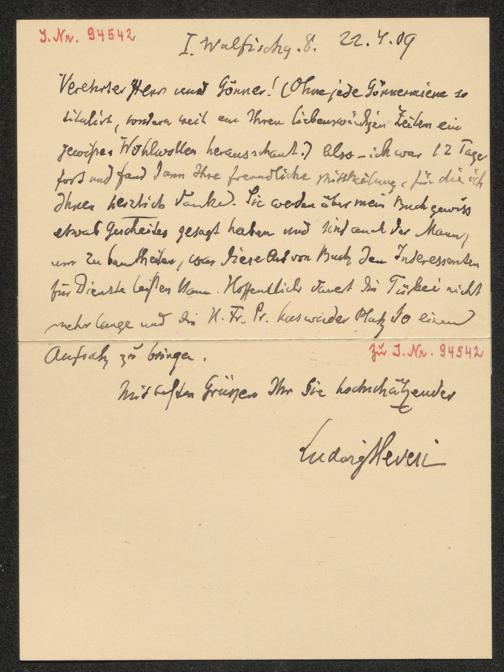 J. Nr. 94542
I. Walfischg. 8. 22.4.09
Verehrter Herr und Gönner! (Ohne jede Gönnermiene so
titulirt, sondern weil aus Ihren liebenswürdigen Zeilen ein
gewisses Wohlwollen herausschaut.) Also – ich war 12 Tage
fort und fand dann Ihre freundliche Mittheilung, für die ich
Ihnen herzlich danke. Sie werden über mein Buch gewiss
etwas Gescheites gesagt haben und sind auch der Mann,
um zu beurtheilen, was diese Art von Buch den Interessenten
für Dienste leisten kann. Hoffentlich dauert die Türkei nicht
mehr lange und die N. Fr. Pr. hat wieder Platz so einen
Aufsatz zu bringen.
zu J. Nr. 94542
Mit besten Grüssen Ihr Sie hochschätzender
Ludwig Hevesi